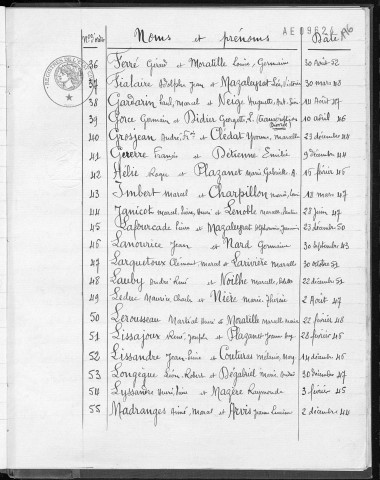 Nos d'ordre Noms et prénoms Date
AE09624
36 Ferré Giraud et Moratille Louise, Germain 30 Août 52
37 Fialaire Adolphe Jean et Mazaleyrat 30 mars 48
38 Gardarin Paul, Marcel et Neige Huguette 11 Août 47
39 Gorce Germain et Didier Georgette L. (transcription Divorce) 10 avril 46
40 Grosjean André et Clédat Yvonne, marcelle 23 décembre 44
41 Guerre François et Détienne Emilie 9 décembre 44
42 Hélie Roger et Plazanet marie Gabrielle 15 février 45
43 Imbert marcel et Charpillon marie 18 mars 47
44 Janicot marcel, Henri et Lenoble 28 juin 47
45 Lafourcade et Mazaleyrat 23 décembre 45
46 Lanourice Jean et Nard Germaine 30 septembre 43
47 Larquetoux Clément, marcel et Larivière marcelle 30 octobre 51
48 Lauby André René et Noilhe marcelle 22 décembre 51
49 Leduc Maurice Charles et Nière marie 2 Août 47
50 Lerousseau Martial Henri et Moratille marcelle 22 février 48
51 Lissajoux René, Joseph et Plazanet 28 février 45
52 Lissandre Jean-Louis et Couturas 14 décembre 45
53 Longèque Léon, Robert et Dégabriel marie 30 décembre 47
54 Lyssandre Henri, et Mazère Raymonde 3 février 45
55 Madranges Aimé, Marcel et Arvis 2 décembre 44